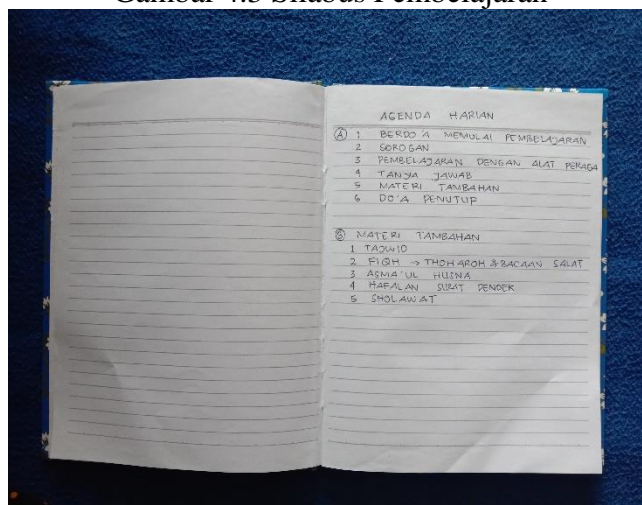 Gambar 4.3 Silabus Pembelajaran
AGENDA HARIAN
(A) 1 BERDO'A MEMULAI PEMBELAJARAN
2 SOROGAN
3 PEMBELAJARAN DENGAN ALAT PERAGA
4 TANYA JAWAB
5 MATERI TAMBAHAN
6 DO'A PENUTUP
(B) MATERI TAMBAHAN
1 TAJWID
2 FIQH → THOHAROH & BACAAN SALAT
3 ASMA'UL HUSNA
4 HAFALAN SURAT PENDEK
5 SHOLAWAT